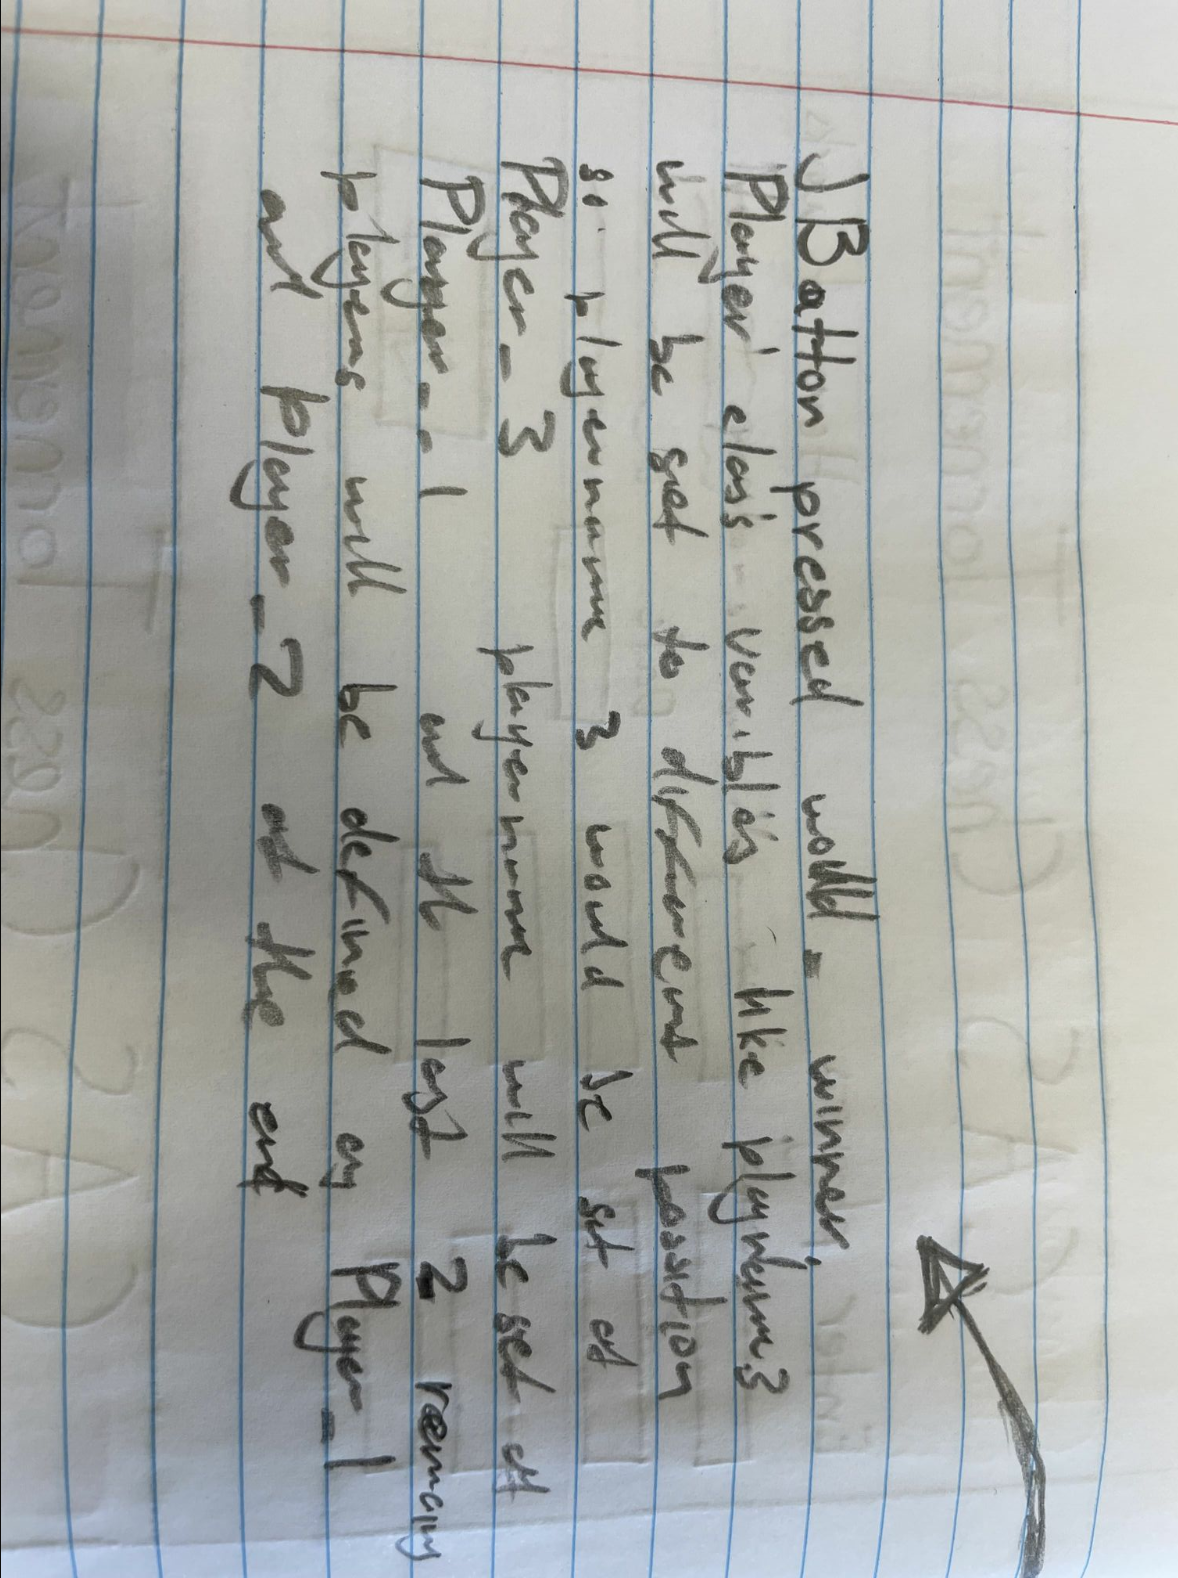 JButton pressed would - winner,
Player class variables like playname3
will be set to different position
so playername 3 would be set at
Player_3 playername will be set at
Player_1 and the last 2 remaing
players will be defined as Player_1
and player_2 at the end